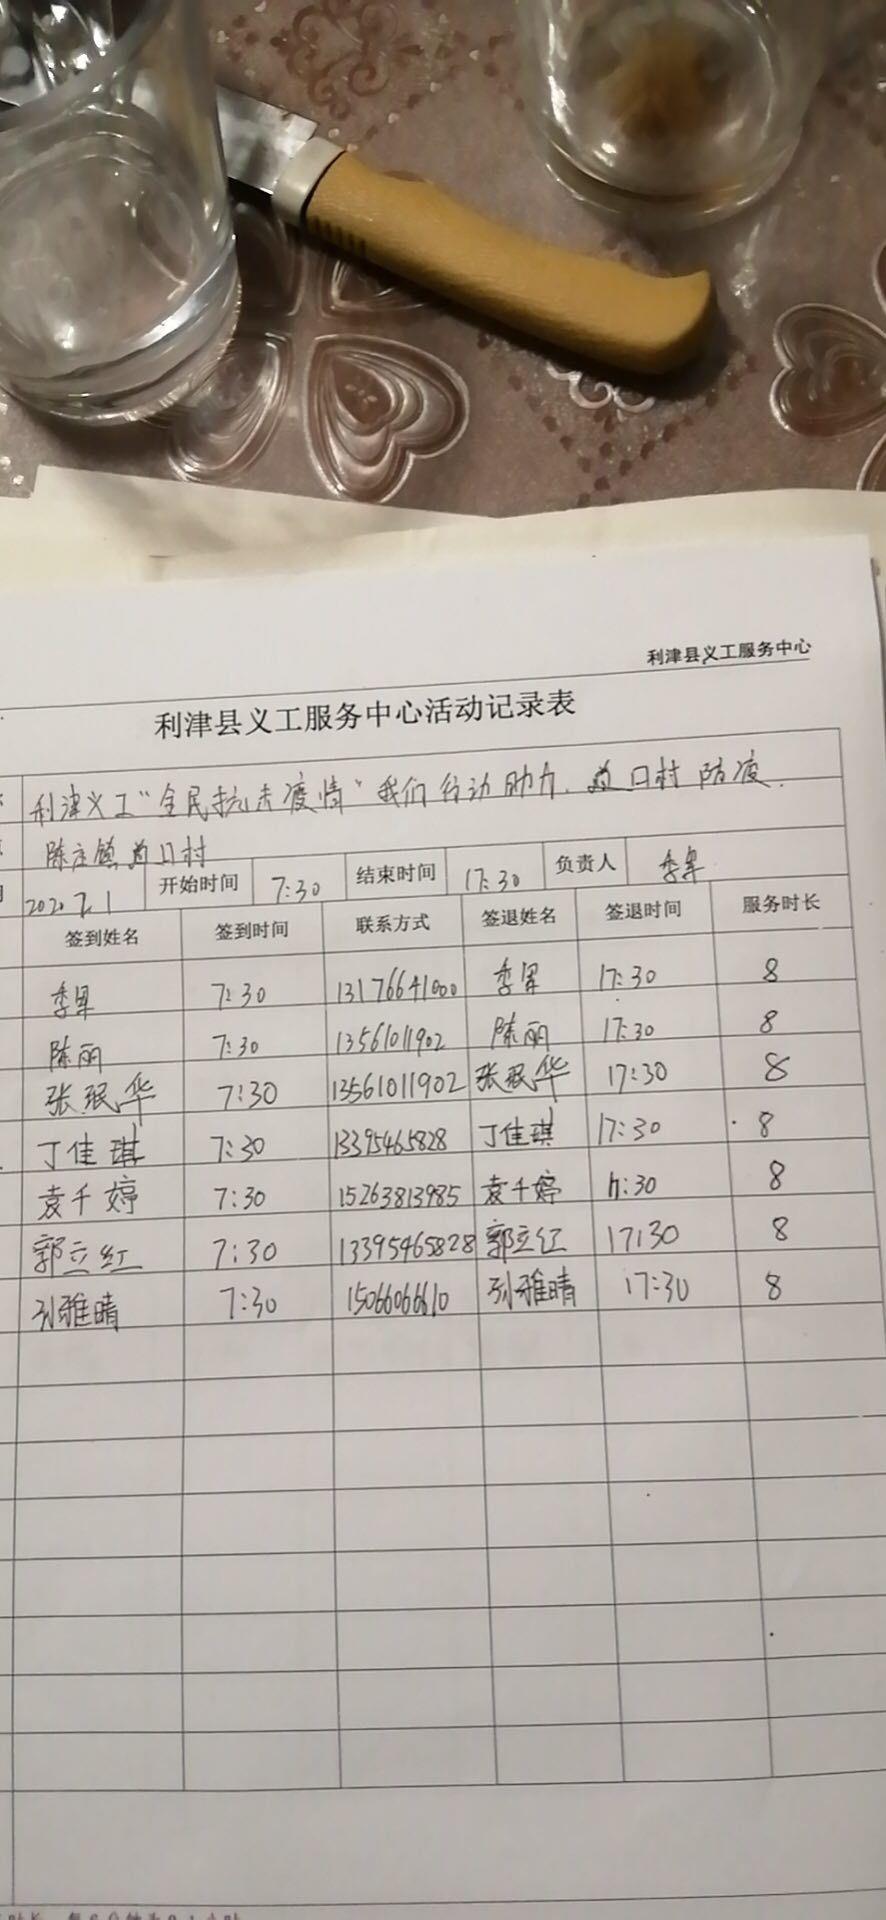 利津县义工服务中心
利津县义工服务中心活动记录表
利津义工"全民抗击疫情"我们行动助力 口村 防疫
陈庄镇 口村
2020.2.1 开始时间 7:30 结束时间 17:30 负责人 季军
签到姓名 签到时间 联系方式 签退姓名 签退时间 服务时长
季军 7:30 13176641000 季军 17:30 8
陈丽 7:30 13561011902 陈丽 17:30 8
张珉华 7:30 13561011902 张珉华 17:30 8
丁佳琪 7:30 13395465828 丁佳琪 17:30 8
袁千婷 7:30 15263813985 袁千婷 17:30 8
郭立红 7:30 13395465828 郭立红 17:30 8
孙雅晴 7:30 15066066610 孙雅晴 17:30 8